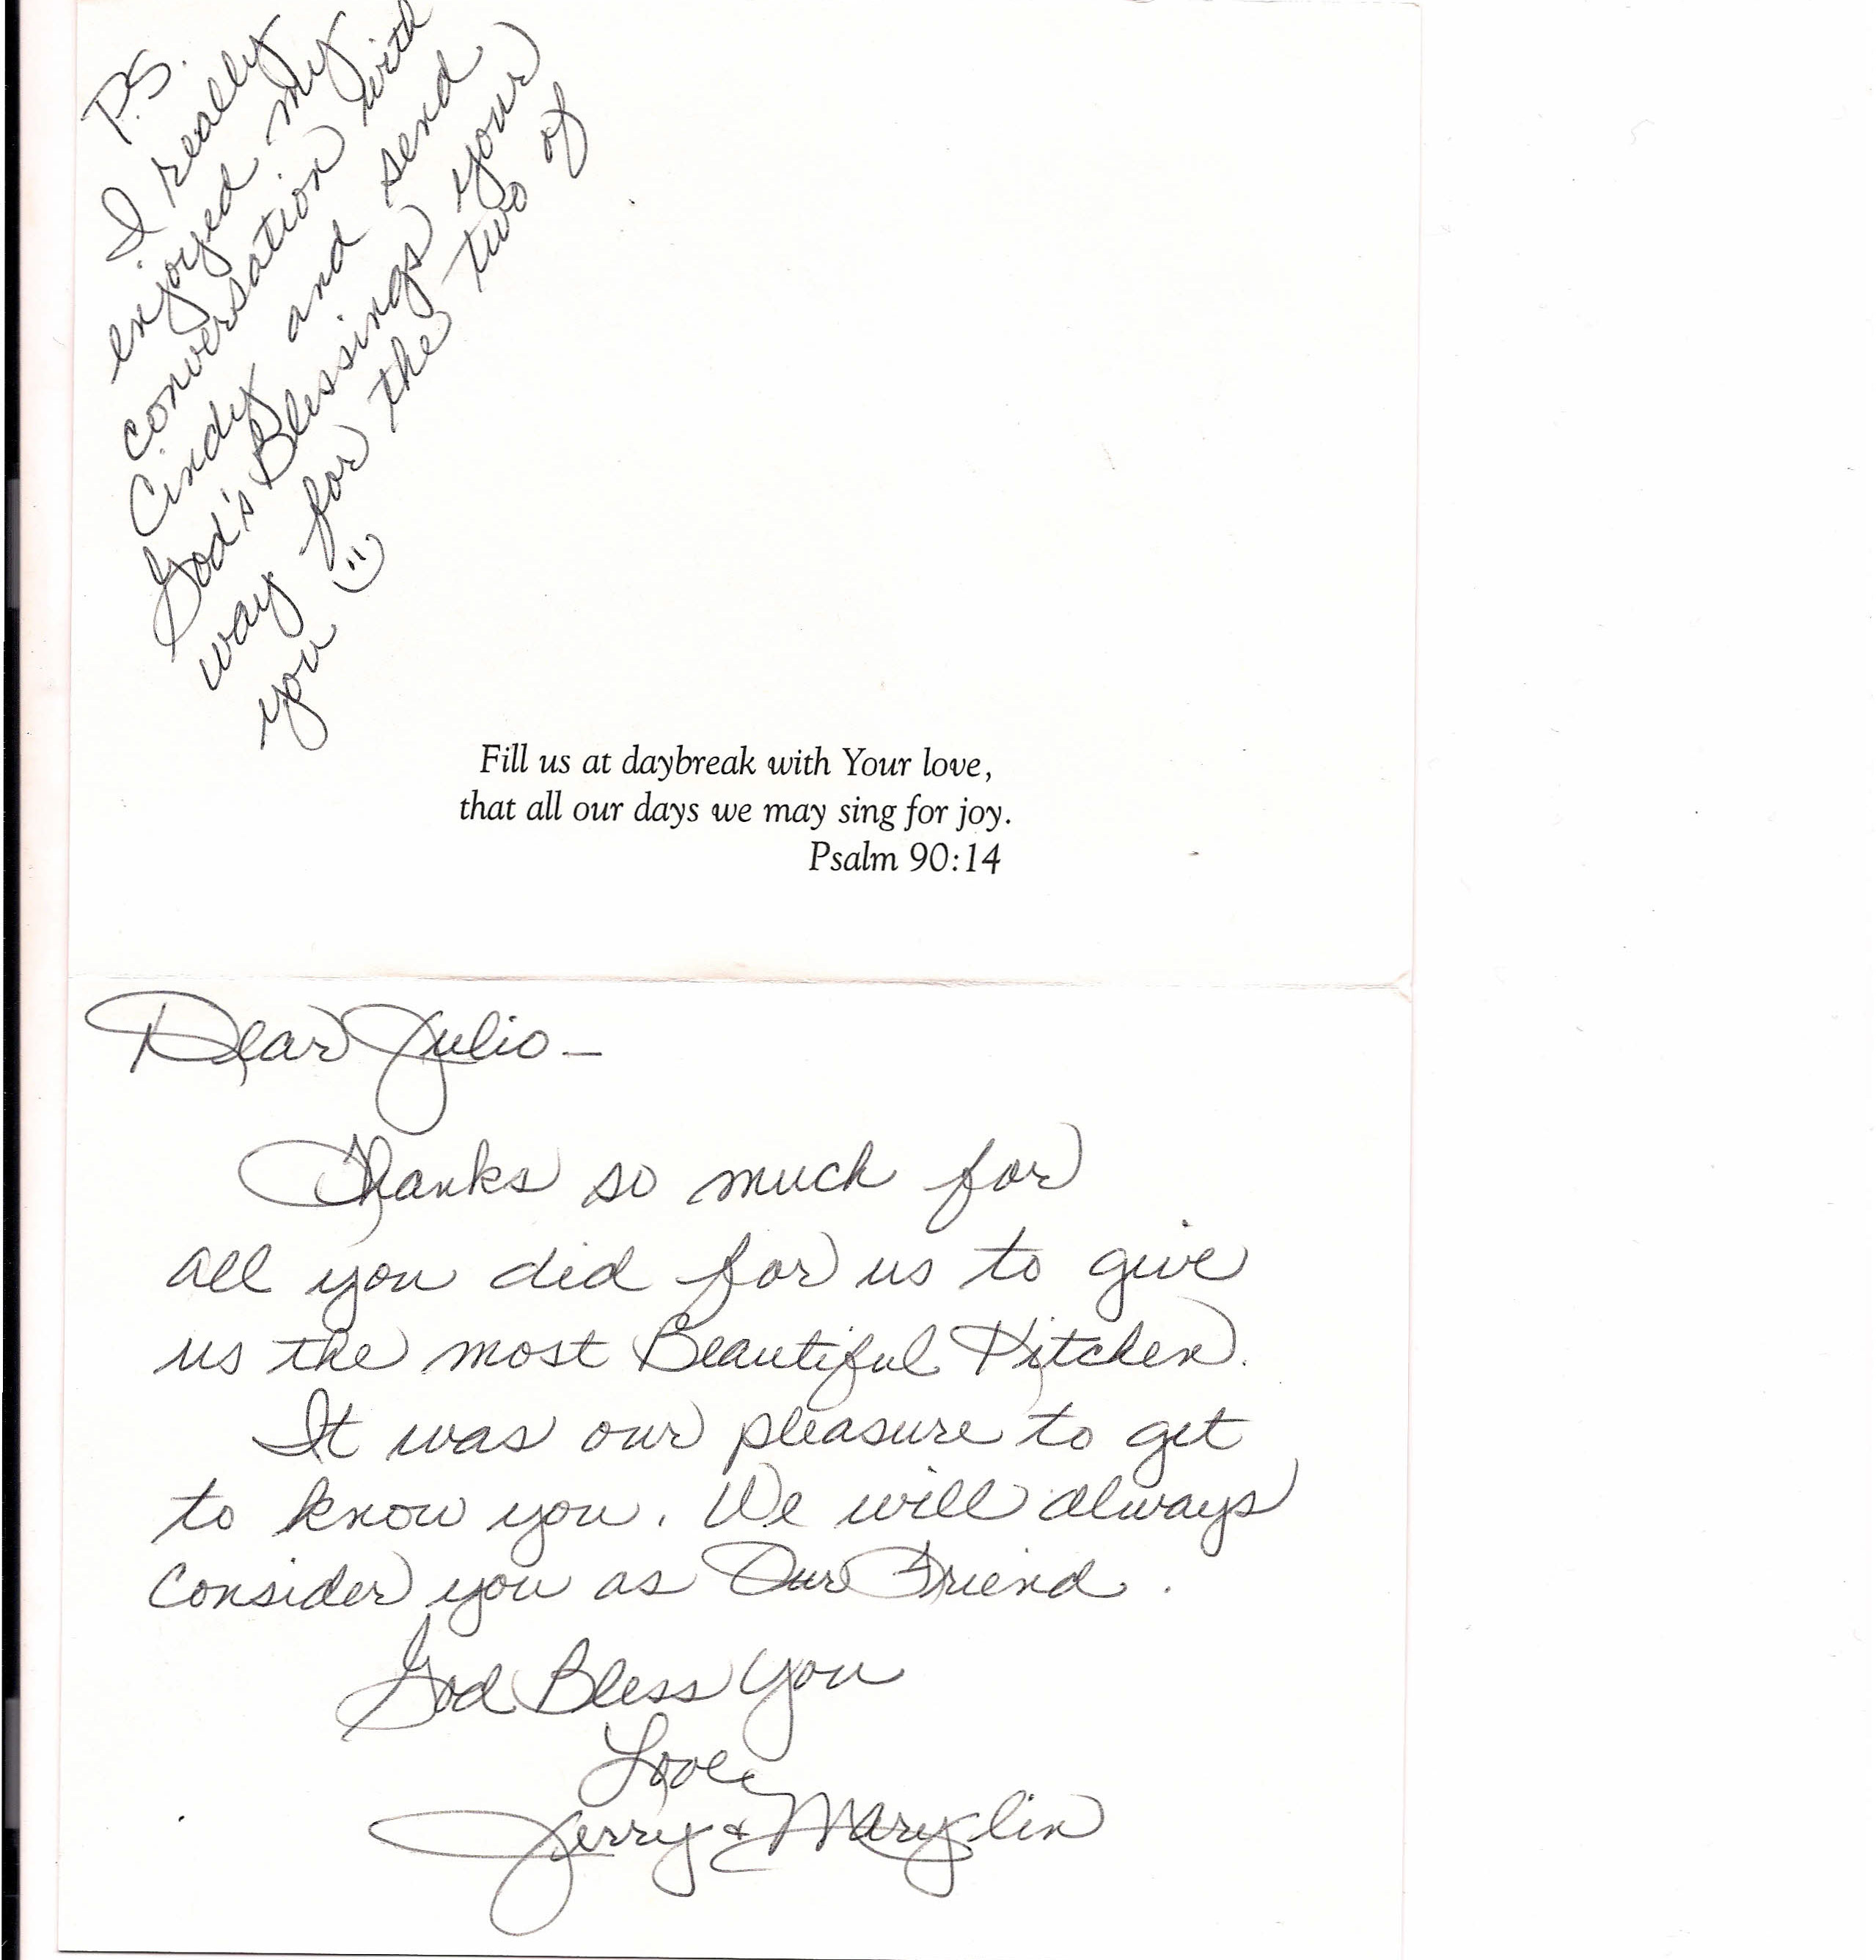 P.S.
I really
enjoyed my
conversation with
Cindy and send
God's Blessings your
way for the two of
you
Fill us at daybreak with Your love,
that all our days we may sing for joy.
Psalm 90:14
Dear Julio –
Thanks so much for
all you did for us to give
us the most Beautiful Kitchen.
It was our pleasure to get
to know you. We will always
consider you as Our Friend.
God Bless You
Love,
Jerry & Marylin